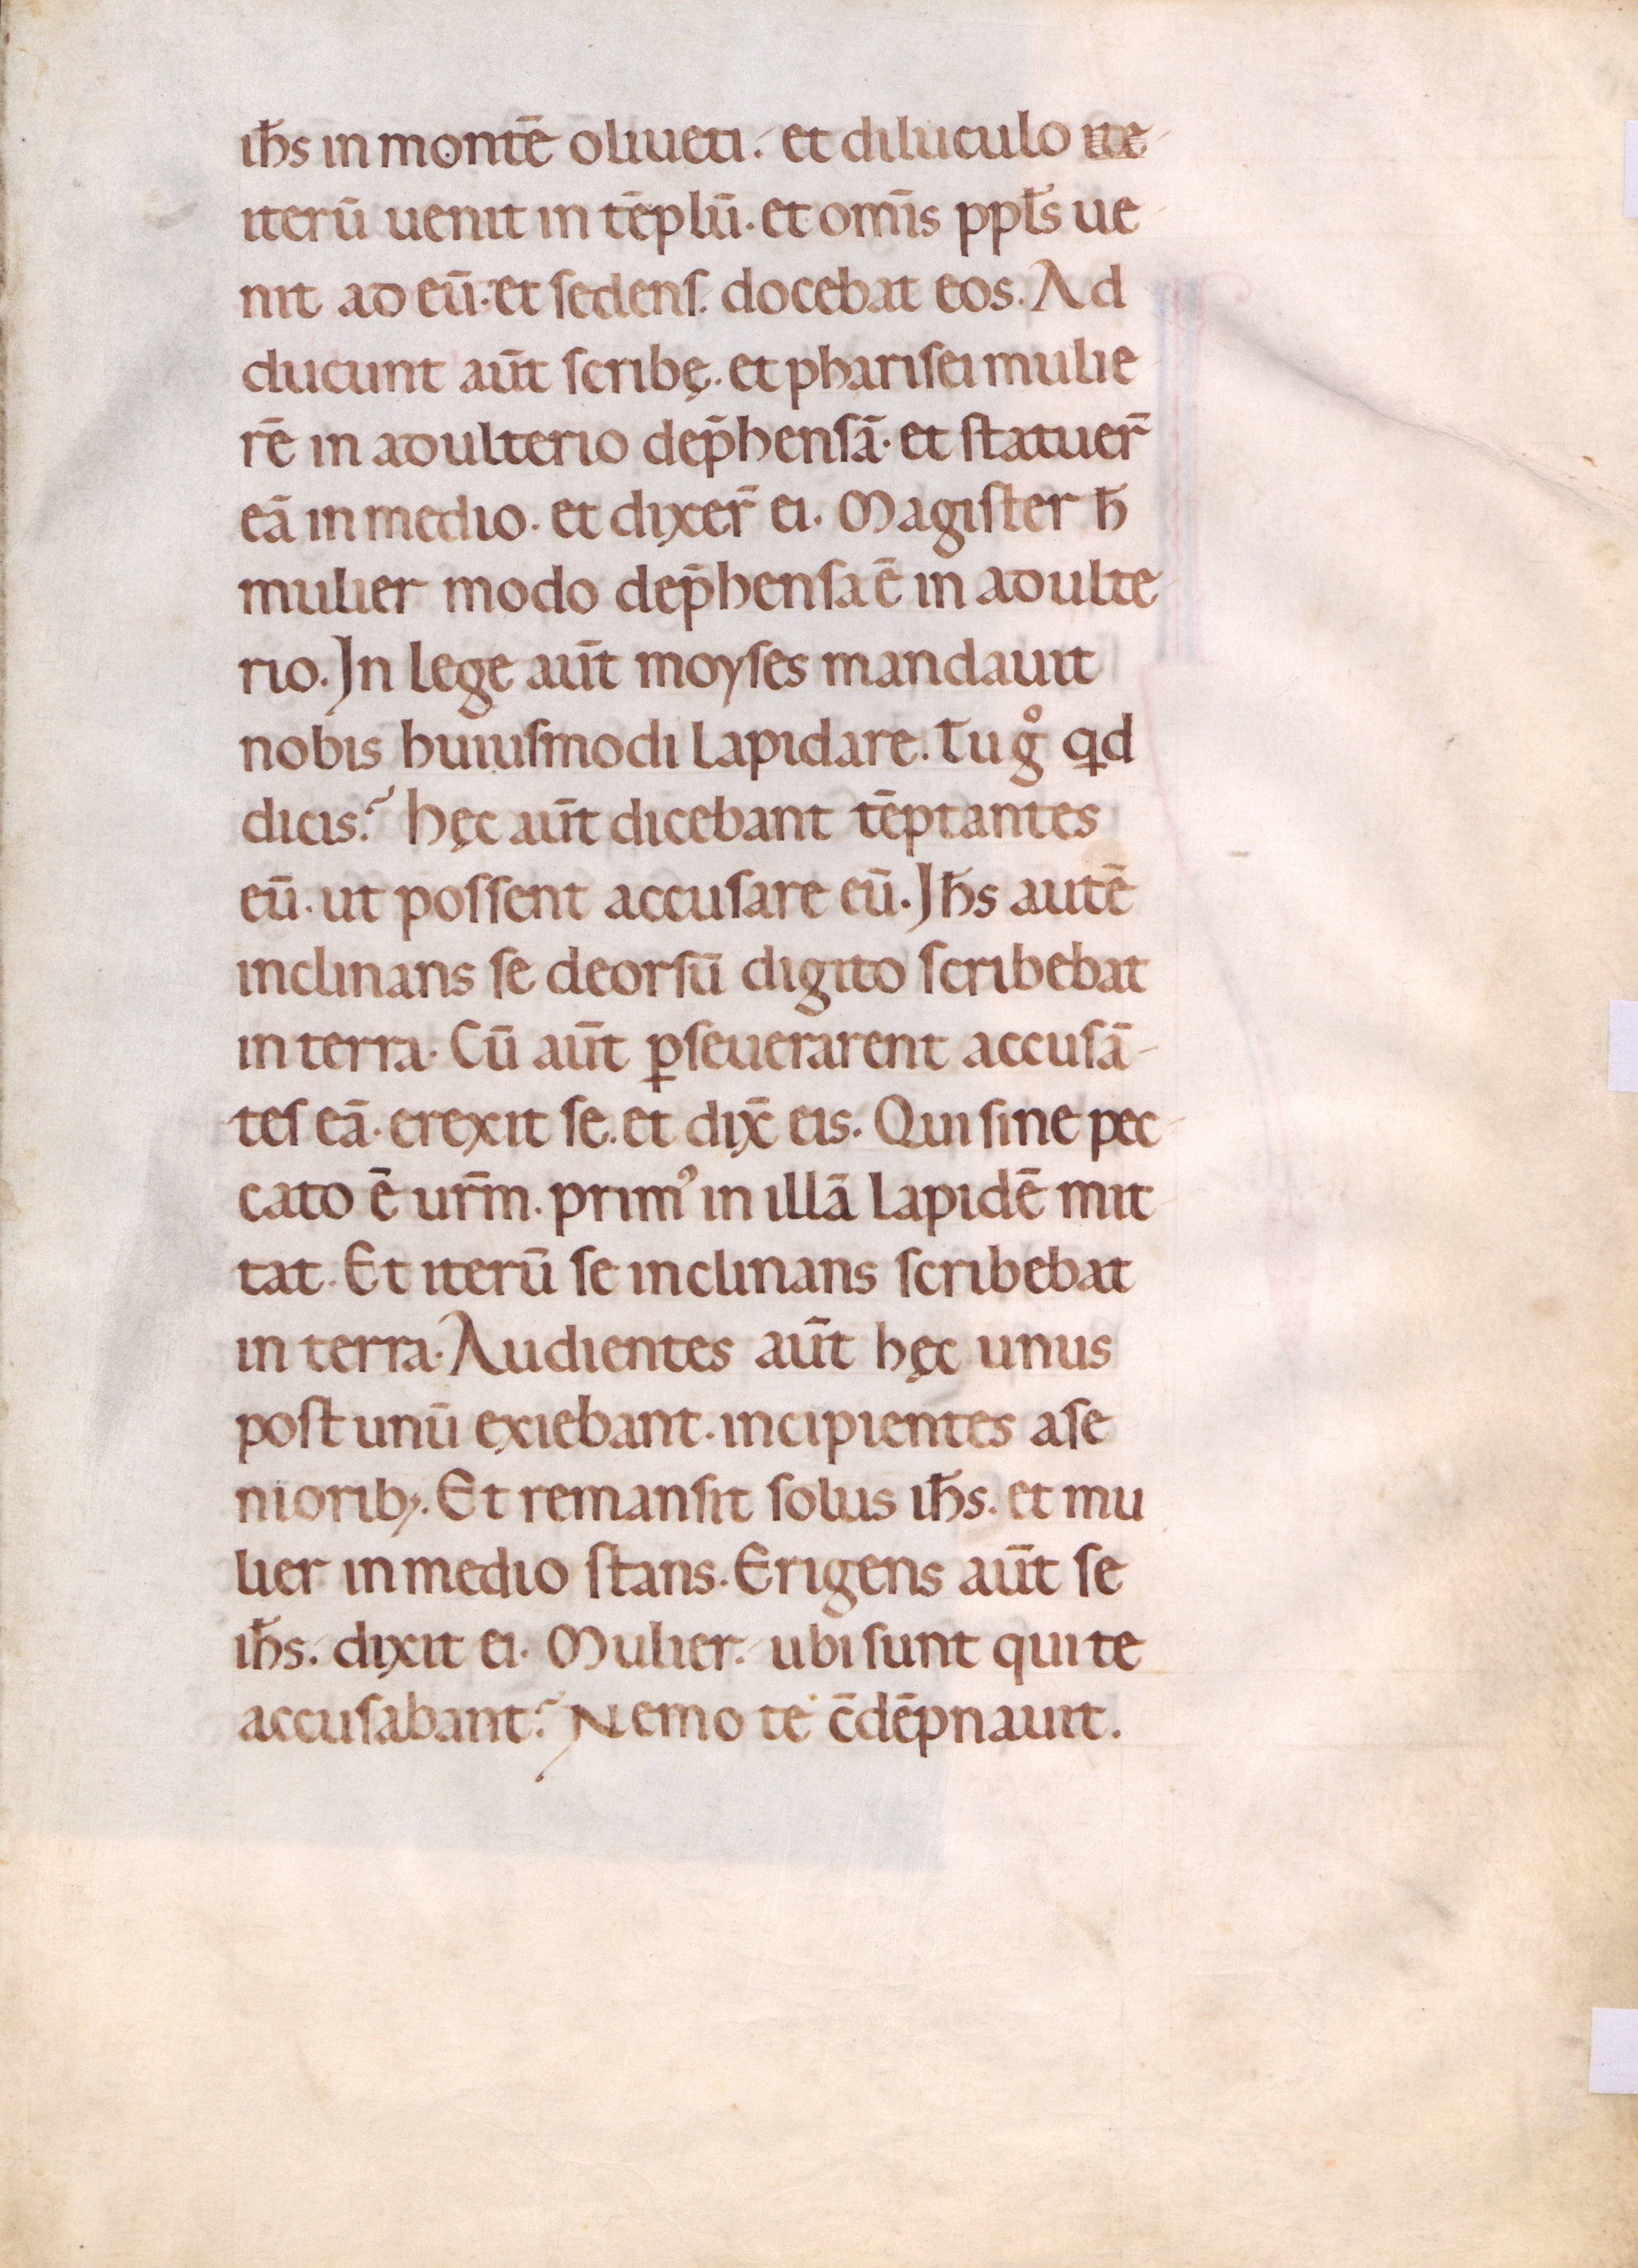 ih̄s in montē oliueti. et diluculo
iterū uenit in tēplū. et om̄is ppl̄s ue
nit ad eū. et sedens. docebat eos. Ad
ducunt aūt scribę. et pharisei mulie
rē in adulterio dep̄hensā. et statuer̄
eā in medio. et dixer̄ ei. Magister h̄
mulier modo dep̄hensa ē in adulte
rio. In lege aūt moyses mandauit
nobis huiusmodi lapidare. Tu gͦ qd
dicis? hęc aūt dicebant tēptantes
eū. ut possent accusare eū. Ih̄s autē
inclinans se deorsū digito scribebat
in terra. Cū aūt ꝑseuerarent accusā-
tes eā. erexit se. et dix̄ eis. Qui sine pec-
cato ē ur̄m. primꝰ in illā lapidē mit
tat. Et iterū se inclinans scribebat
in terra. Audientes aūt hęc unus
post unū exiebant. incipientes a se
niorib;. Et remansit solus ih̄s. et mu
lier in medio stans. Erigens aūt se
ih̄s. dixit ei. Mulier. ubi sunt qui te
accusabant? Nemo te c̄dēpnauit.